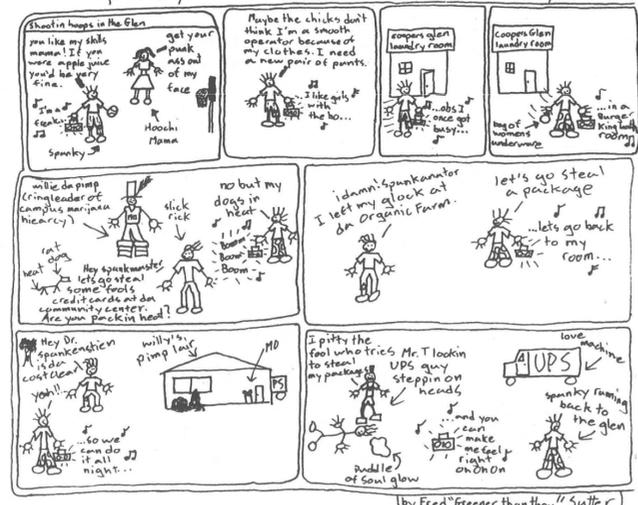 Shootin hoops in the Glen
you like my skills
mama! If you
were apple juice
you'd be very
fine.
♪ I'm a ♪
freak...
Spanky
get your
punk
ass out
of my
face
Hoochi
Mama
Maybe the chicks don't
think I'm a smooth
operator because of
my clothes. I need
a new pair of pants.
I like girls
with
the bo...
coopers glen
laundry room
...obs I
once got
busy...
Coopers Glen
laundry room
bag of
womens
underware
...in a
Burger
King bath
room
willie da pimp
(ringleader of
campus marijana
hiearcy)
slick
rick
no but my
dogs in
heat
Boom
Boom
Boom
rat
dog
heat
Hey spankmaster
lets go steal
some fools
credit cards at da
community center.
Are you packin heat?
damn! spankanator
I left my glock at
da Organic Farm.
let's go steal
a package
...lets go back
to my
room...
Hey Dr.
spankenstien
is da
cost clear?
yeah!!
...so we
can do
it all
night...
willy's
pimp lair
MD
PS
I pitty the
fool who tries
to steal
my package!
Mr. T lookin
UPS guy
steppin on
heads
puddle
of soul glow
...and you
can
make
me feel
right
on on on
UPS
love
machine
spanky running
back to
the glen
by Fred "Greener than thou" Sutter